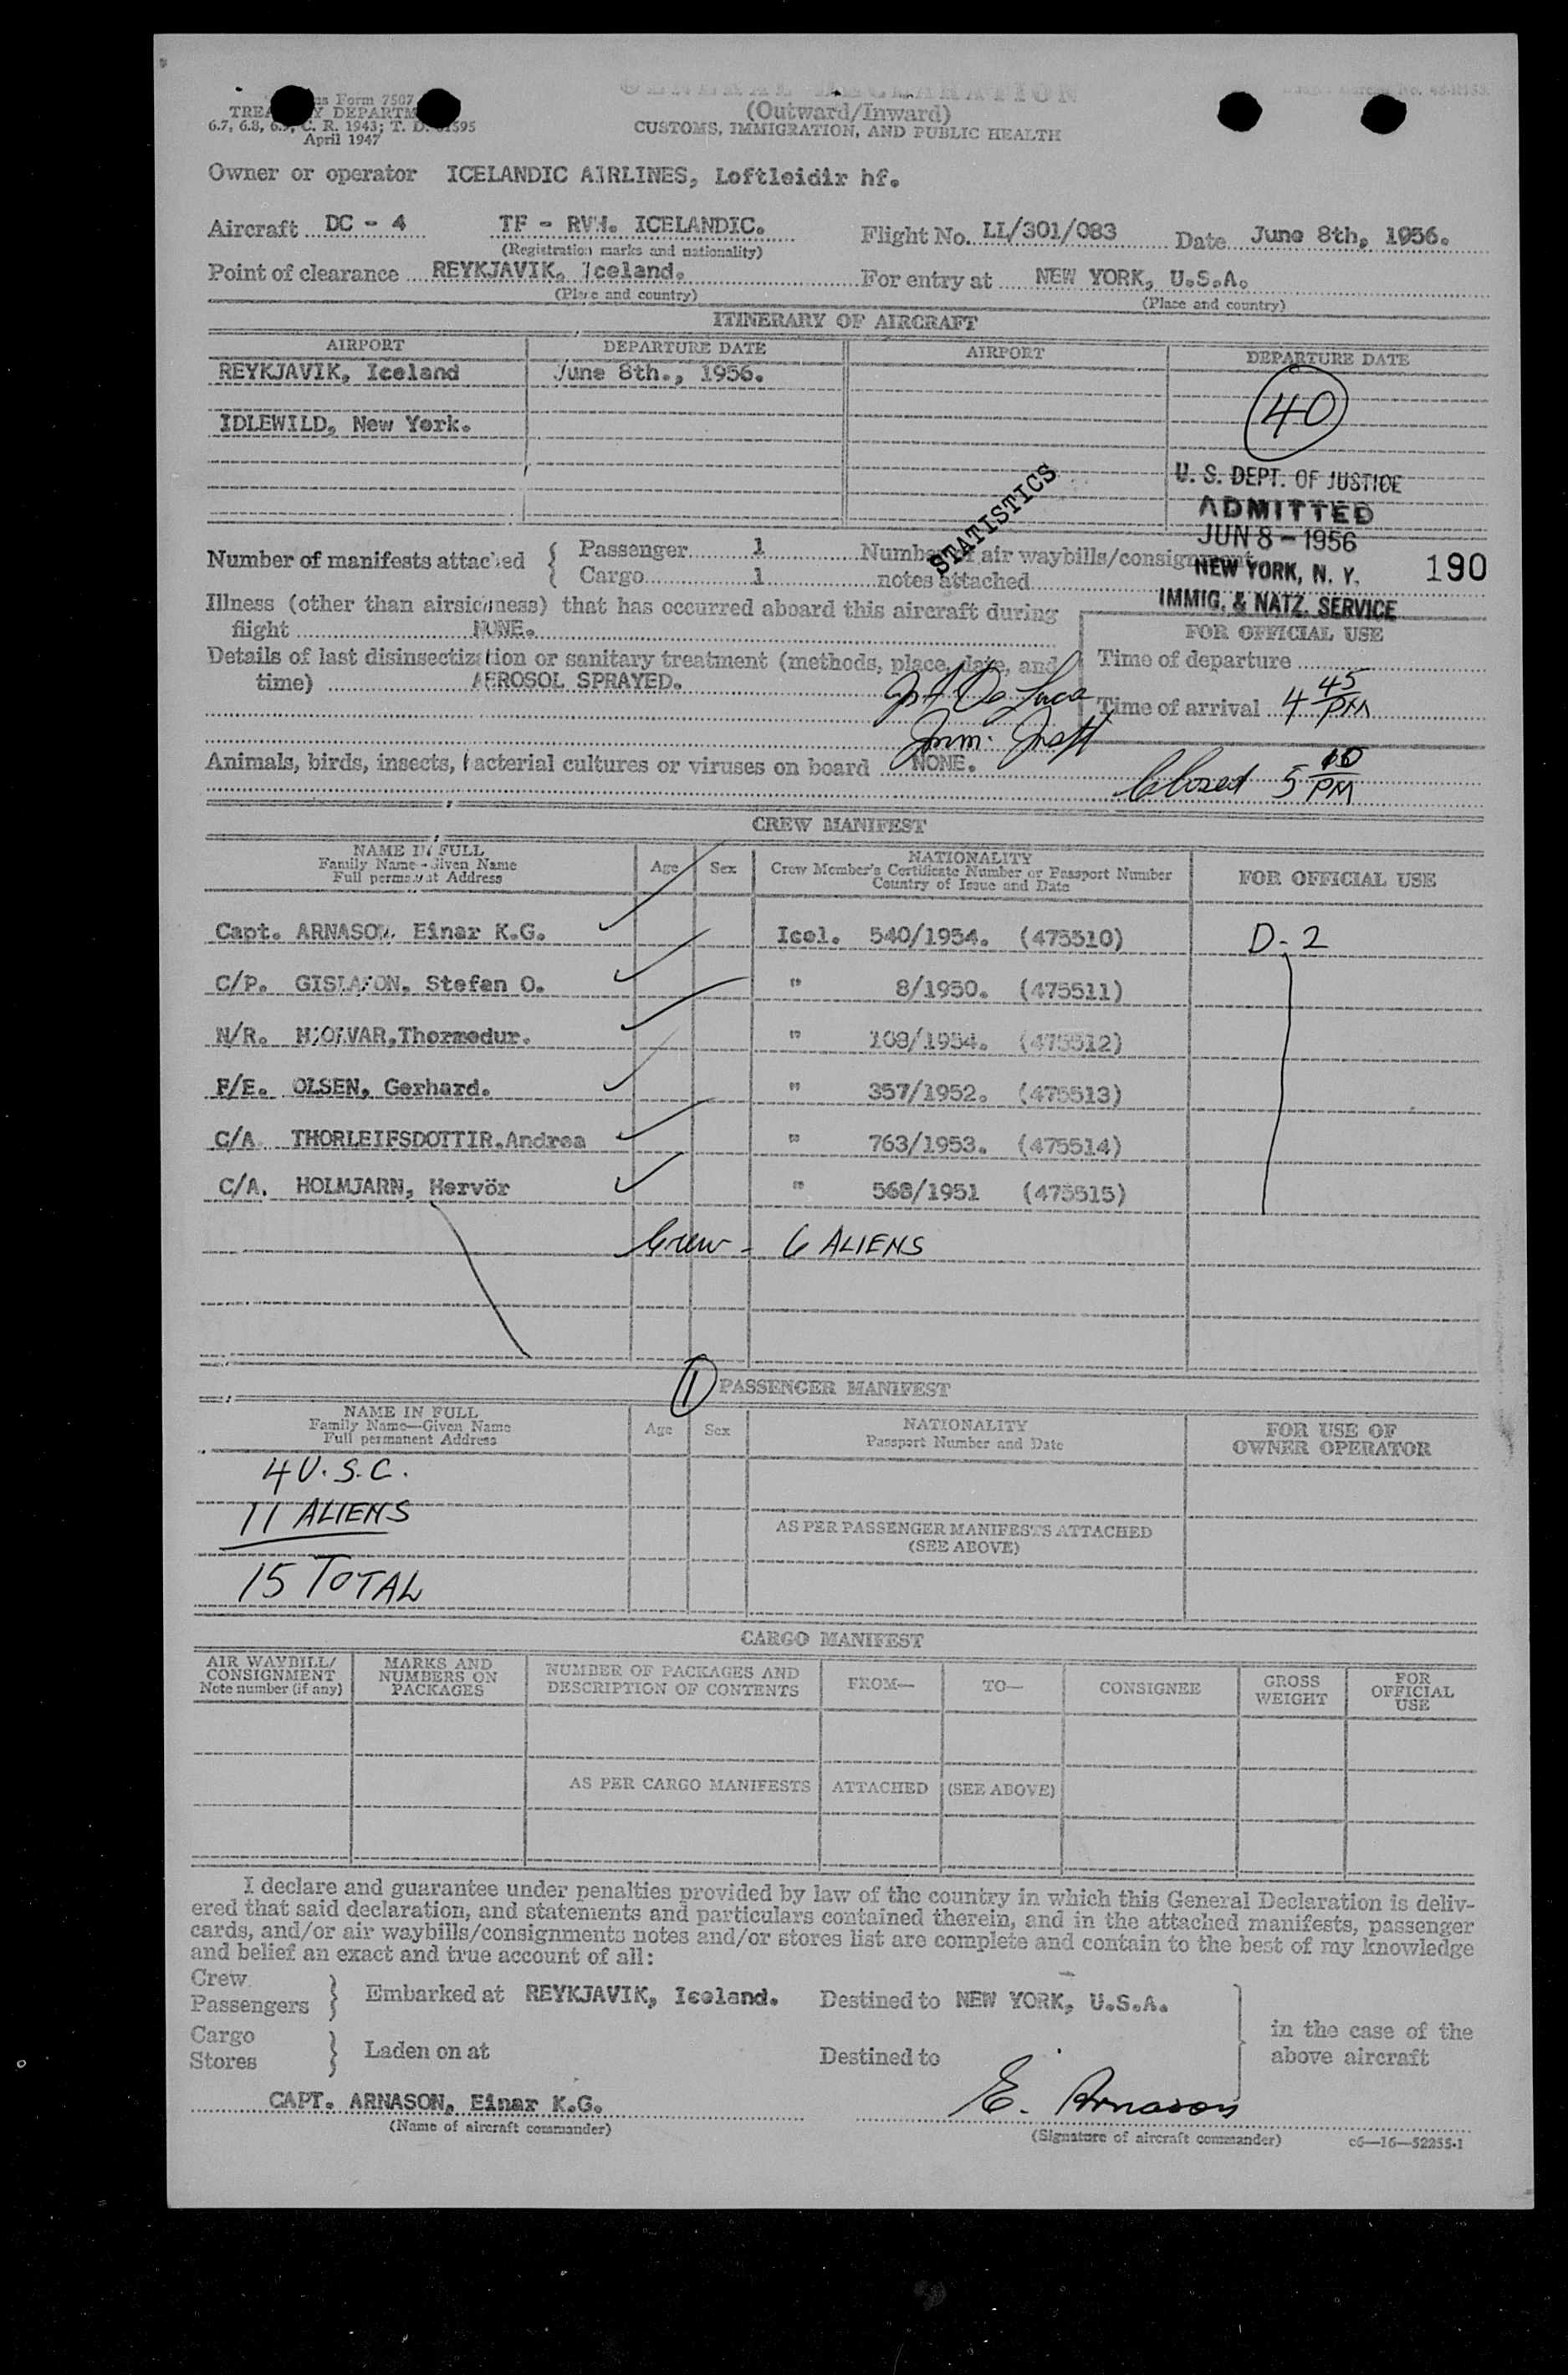 Form 7507
TREASURY DEPARTMENT
6.7, 6.8, C. R. 1943; T. D.
April 1947
GENERAL DECLARATION
(Outward/Inward)
CUSTOMS, IMMIGRATION, AND PUBLIC HEALTH
Owner or operator ICELANDIC AIRLINES, Loftleidir hf.
Aircraft DC - 4 TF - RVH. ICELANDIC. Flight No. LL/301/083 Date June 8th, 1956.
(Registration marks and nationality)
Point of clearance REYKJAVIK, Iceland. For entry at NEW YORK, U.S.A.
(Place and country) (Place and country)
ITINERARY OF AIRCRAFT
AIRPORT DEPARTURE DATE AIRPORT DEPARTURE DATE
REYKJAVIK, Iceland June 8th., 1956.
40
IDLEWILD, New York.
U. S. DEPT. OF JUSTICE
ADMITTED
JUN 8 - 1956
NEW YORK, N. Y.
IMMIG. & NATZ. SERVICE
STATISTICS
190
Number of manifests attached { Passenger 1 Number of air waybills/consignment
Cargo 1 notes attached
Illness (other than airsickness) that has occurred aboard this aircraft during
flight NONE.
FOR OFFICIAL USE
Details of last disinsectization or sanitary treatment (methods, place, date, and
time) AEROSOL SPRAYED.
Time of departure
Time of arrival 4 45 PM
Imm. Insp
Animals, birds, insects, bacterial cultures or viruses on board NONE.
Closed 5 10 PM
CREW MANIFEST
NAME IN FULL
Family Name - Given Name
Full permanent Address
Age Sex
NATIONALITY
Crew Member's Certificate Number or Passport Number
Country of Issue and Date
FOR OFFICIAL USE
Capt. ARNASON, Einar K.G. Icel. 540/1954. (475510) D-2
C/P. GISLASON, Stefan O. " 8/1950. (475511)
N/R. HJOLVAR, Thormodur. " 108/1954. (475512)
F/E. OLSEN, Gerhard. " 357/1952. (475513)
C/A THORLEIFSDOTTIR, Andrea " 763/1953. (475514)
C/A. HOLMJARN, Hervör " 568/1951 (475515)
Crew - 6 ALIENS
1 PASSENGER MANIFEST
NAME IN FULL
Family Name—Given Name
Full permanent Address
Age Sex
NATIONALITY
Passport Number and Date
FOR USE OF
OWNER OPERATOR
4 U.S.C.
11 ALIENS
AS PER PASSENGER MANIFESTS ATTACHED
(SEE ABOVE)
15 TOTAL
CARGO MANIFEST
AIR WAYBILL/
CONSIGNMENT
Note number (if any)
MARKS AND
NUMBERS ON
PACKAGES
NUMBER OF PACKAGES AND
DESCRIPTION OF CONTENTS
FROM—
TO—
CONSIGNEE
GROSS
WEIGHT
FOR
OFFICIAL
USE
AS PER CARGO MANIFESTS ATTACHED (SEE ABOVE)
I declare and guarantee under penalties provided by law of the country in which this General Declaration is deliv-
ered that said declaration, and statements and particulars contained therein, and in the attached manifests, passenger
cards, and/or air waybills/consignments notes and/or stores list are complete and contain to the best of my knowledge
and belief an exact and true account of all:
Crew
Passengers } Embarked at REYKJAVIK, Iceland. Destined to NEW YORK, U.S.A.
Cargo
Stores } Laden on at Destined to
in the case of the
above aircraft
CAPT. ARNASON, Einar K.G. E. Arnason
(Name of aircraft commander) (Signature of aircraft commander) c6—16—52255-1